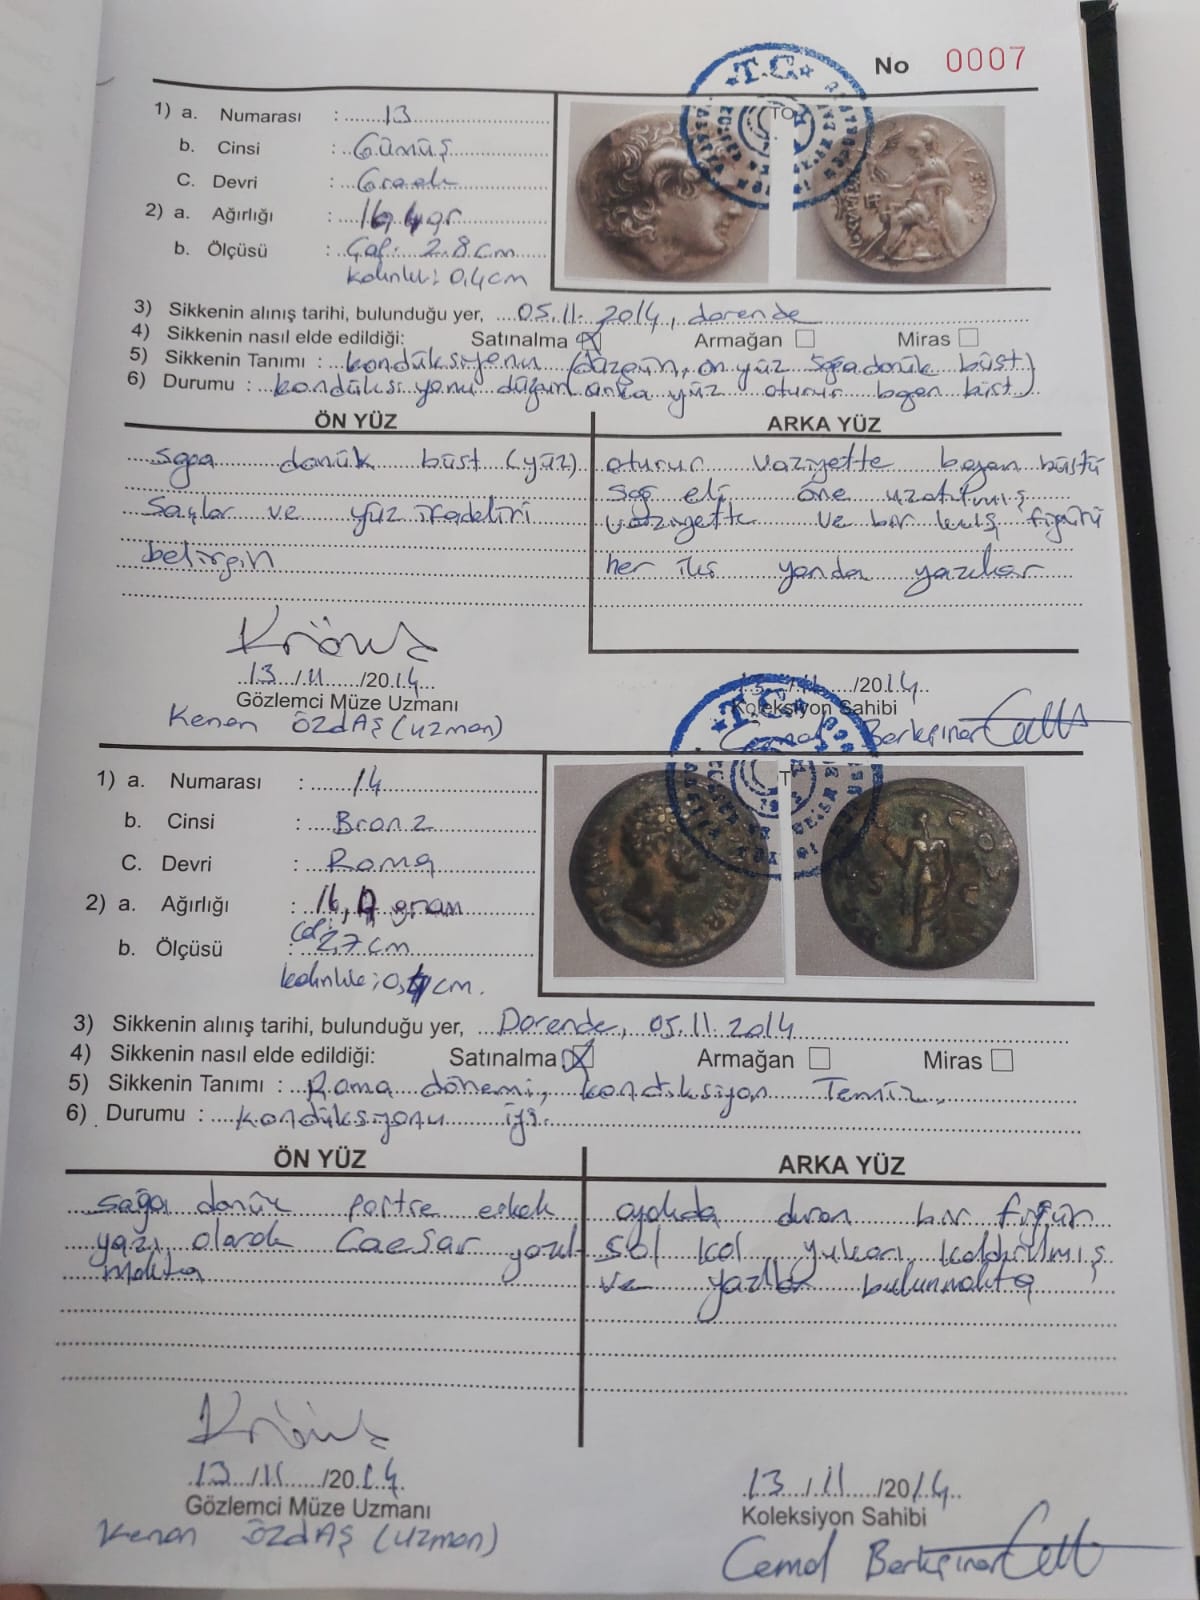 No 0007
1) a. Numarası : 13
b. Cinsi : Gümüş
C. Devri : Greek
2) a. Ağırlığı : 16,4 gr
b. Ölçüsü : Çap: 2.8 cm
kalınlık: 0,4 cm
T.C.
3) Sikkenin alınış tarihi, bulunduğu yer, 05.11.2014, darende
4) Sikkenin nasıl elde edildiği: Satınalma ☒ Armağan ☐ Miras ☐
5) Sikkenin Tanımı : kondüksiyonu (düzgün, ön yüz sağa dönük büst)
6) Durumu : kondüksiyonu düğün (arka yüz oturur bayan büst)
ÖN YÜZ
sağa dönük büst (yüz)
Saçlar ve yüz ifadeleri
belirgin
ARKA YÜZ
oturur vaziyette bayan büstü
sağ eli öne uzatılmış
vaziyette ve bir kuş figürü
her iki yanda yazılar
13/11/2014
Gözlemci Müze Uzmanı
Kenan ÖZDAŞ (uzman)
13/11/2014
Koleksiyon Sahibi
Cemal
T.C.
1) a. Numarası : 14
b. Cinsi : Bronz
C. Devri : Roma
2) a. Ağırlığı : 16,4 gram
b. Ölçüsü : Çap: 2,7 cm
kalınlık; 0,4 cm.
3) Sikkenin alınış tarihi, bulunduğu yer, Darende, 05.11.2014
4) Sikkenin nasıl elde edildiği: Satınalma ☒ Armağan ☐ Miras ☐
5) Sikkenin Tanımı : Roma dönemi, kondiksiyon Temiz
6) Durumu : kondüksiyonu iyi.
ÖN YÜZ
sağa dönük portre erkek
yazı olarak Caesar yazıl
makta
ARKA YÜZ
ayakda duran bir figür
sol kol yukarı kaldırılmış
ve yazılar bulunmakta
13/11/2014
Gözlemci Müze Uzmanı
Kenan ÖZDAŞ (uzman)
13/11/2014
Koleksiyon Sahibi
Cemal